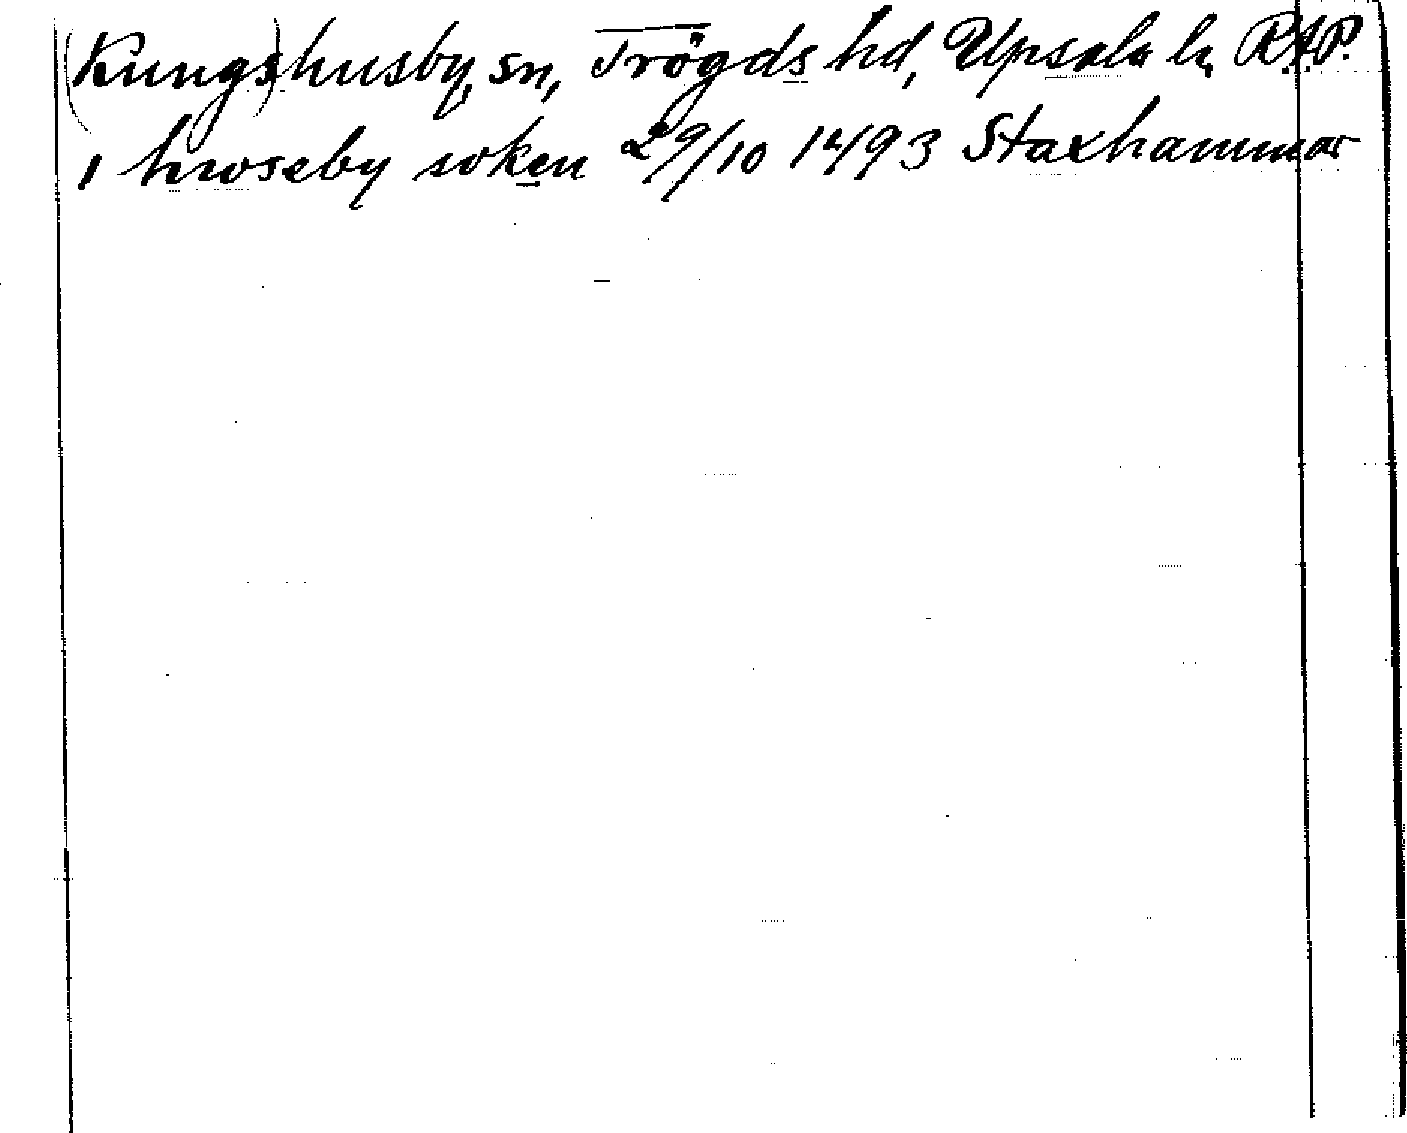 (Kungs)husby, sn, Trögds hd, Upsala ln RAP.
i hwseby soken 29/10 1493 Staxhammar